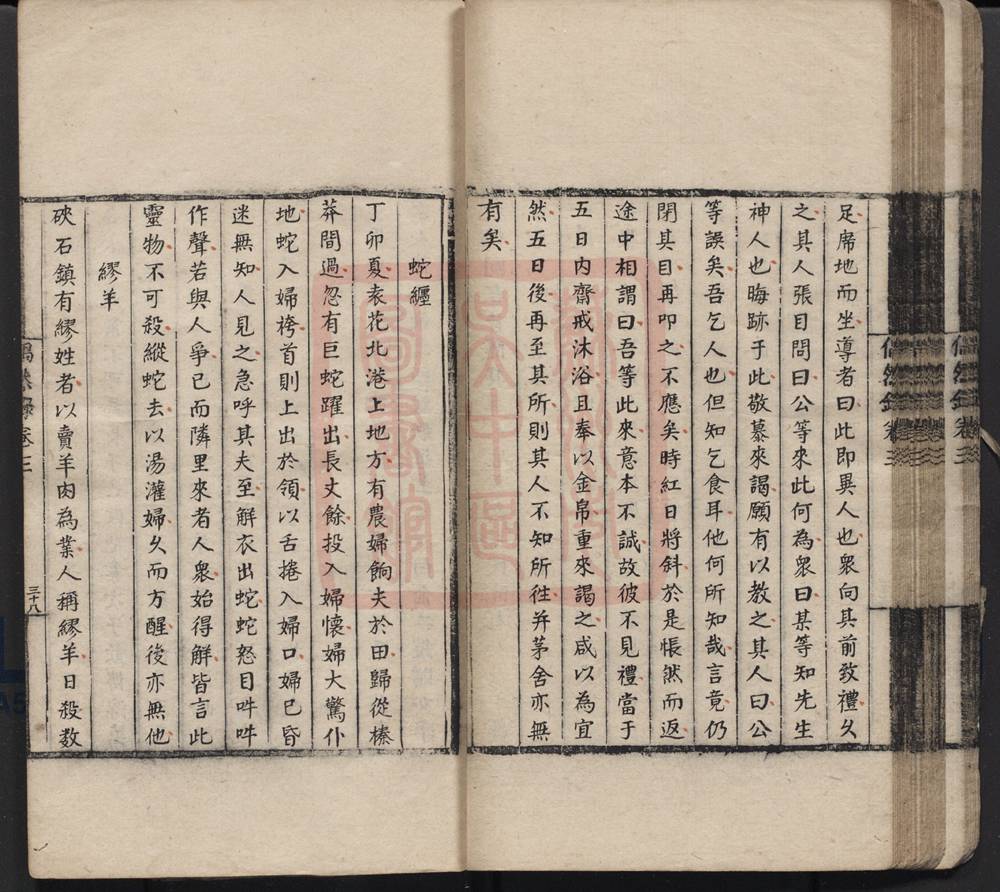 足席地而坐導者曰此即異人也眾向其前致禮久
之其人張目問曰公等來此何為眾曰某等知先生
神人也晦跡于此敬慕來謁願有以教之其人曰公
等誤矣吾乞人也但知乞食耳他何所知哉言竟仍
閉其目再叩之不應矣時紅日將斜於是悵然而返
途中相謂曰吾等此來意本不誠故彼不見禮當于
五日內齋戒沐浴且奉以金帛重來謁之咸以為宜
然五日後再至其所則其人不知所往并茅舍亦無
有矣
蛇纏
丁卯夏袁花北港上地方有農婦餉夫於田歸從榛
莽間過忽有巨蛇躍出長丈餘投入婦懷婦大驚仆
地蛇入婦袴首則上出於領以舌捲入婦口婦已昏
迷無知人見之急呼其夫至解衣出蛇蛇怒目吽吽
作聲若與人爭已而隣里來者人眾始得解皆言此
靈物不可殺縱蛇去以湯灌婦久而方醒後亦無他
繆羊
硤石鎮有繆姓者以賣羊肉為業人稱繆羊日殺數
偶然錄卷三
三十八